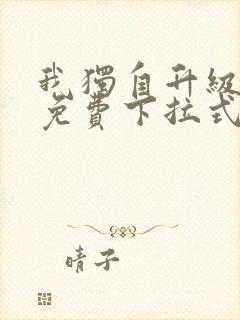 我獨自升級
免費下拉式
晴子